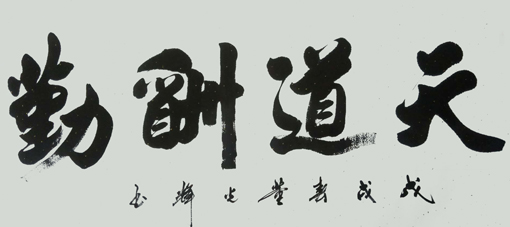 天道酬勤
戊戌春董光辉书